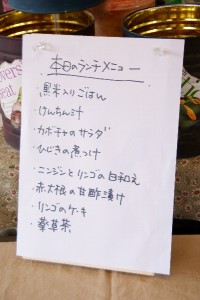 本日のランチメニュー
・黒米入りごはん
・けんちん汁
・カボチャのサラダ
・ひじきの煮つけ
・ニンジンとリンゴの白和え
・赤大根の甘酢漬け
・リンゴのケーキ
・薬草茶